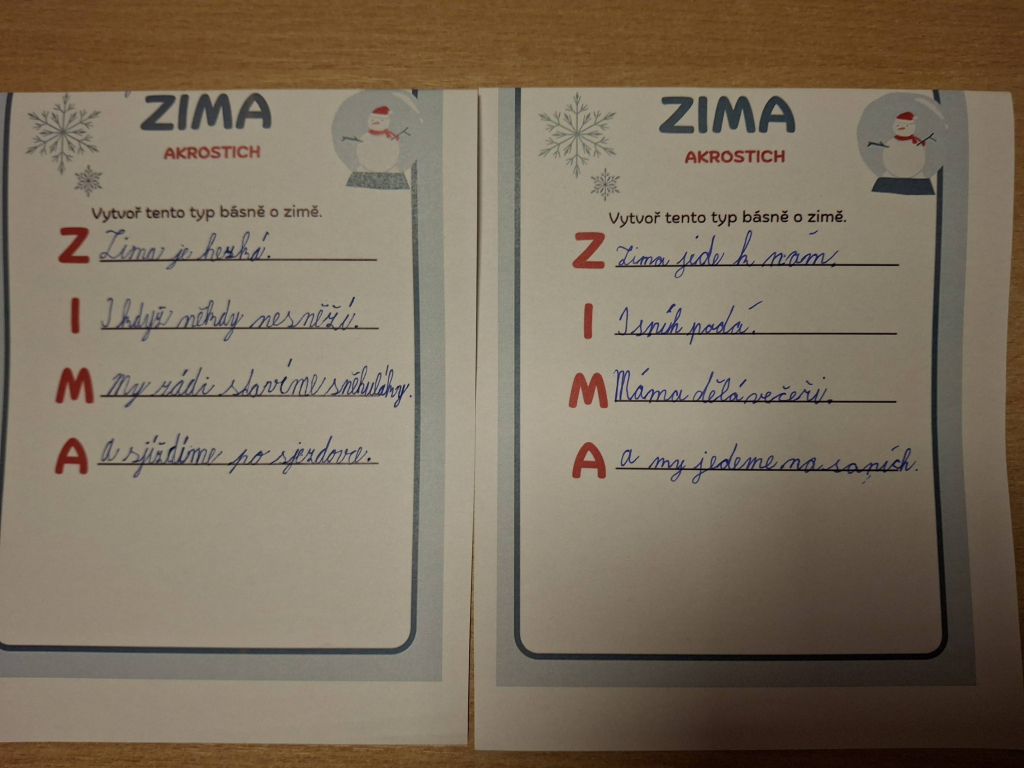 ZIMA
AKROSTICH
Vytvoř tento typ básně o zimě.
Z Zima je hezká.
I I když někdy nesněží.
M My rádi stavíme sněhuláky.
A a sjíždíme po sjezdovce.
ZIMA
AKROSTICH
Vytvoř tento typ básně o zimě.
Z Zima jede k nám.
I I sníh padá.
M Máma dělá večeři.
A a my jedeme na saních.